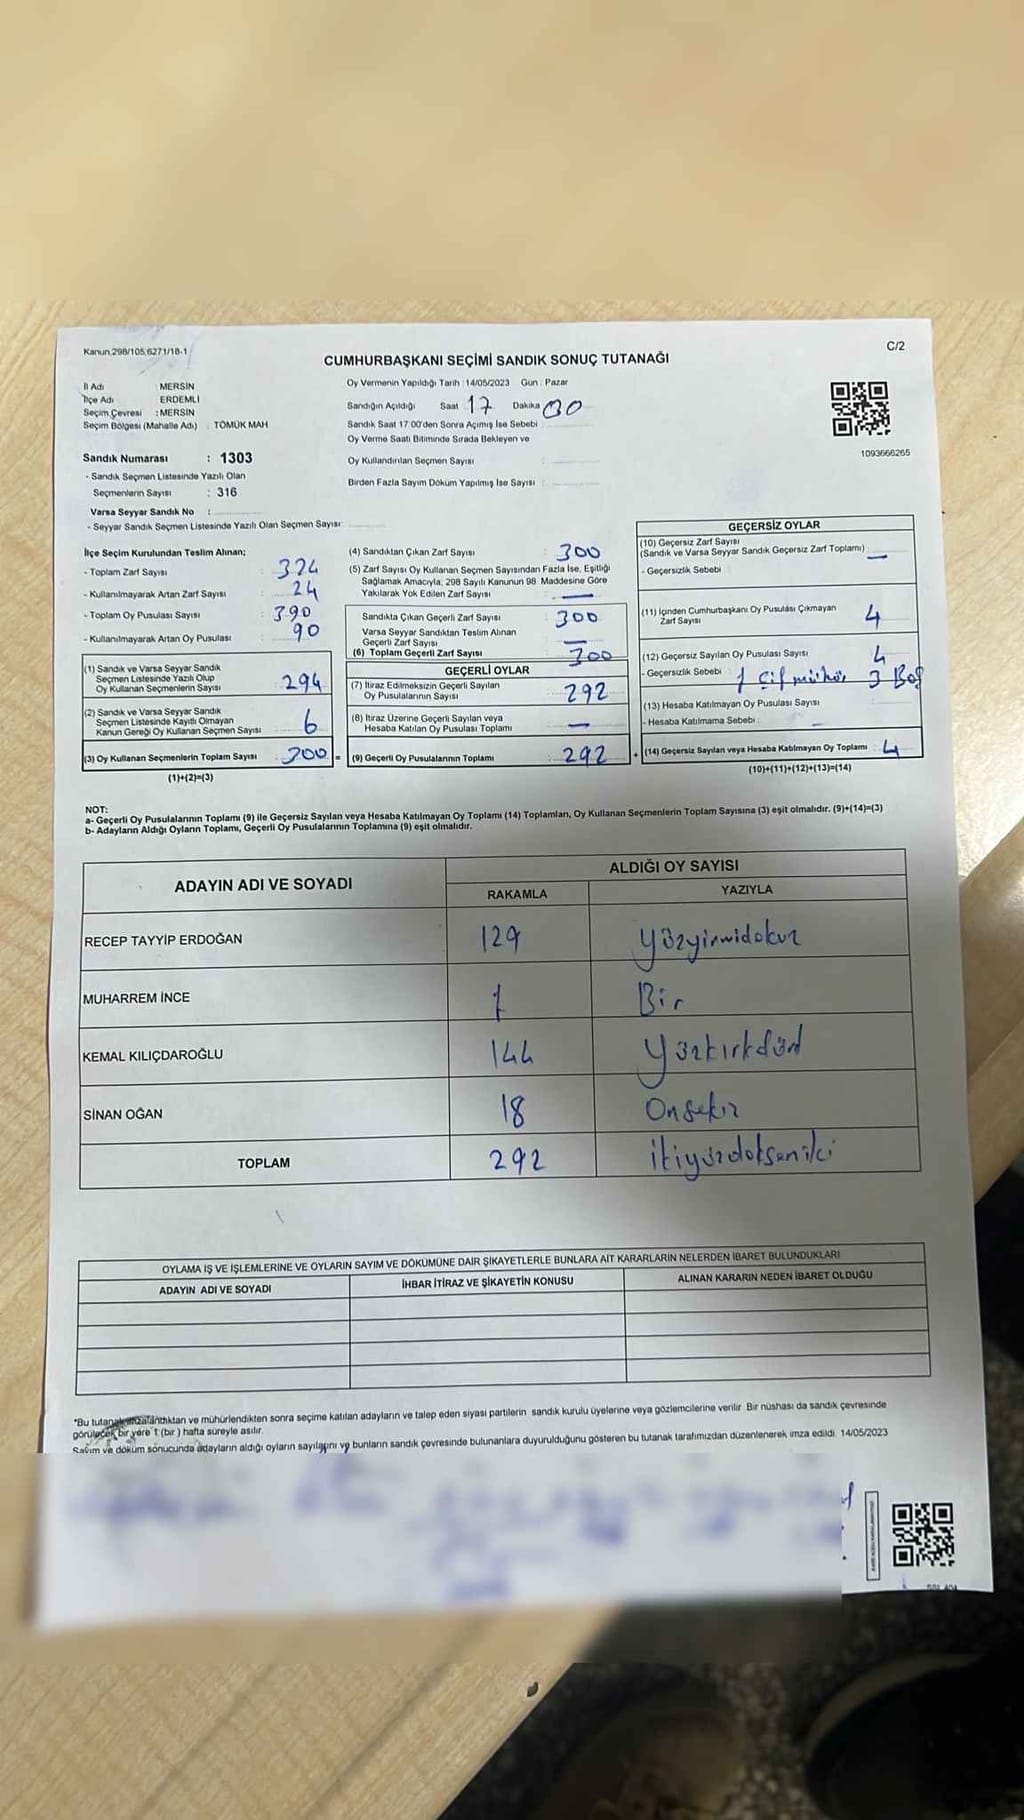 Kanun,298/105,6271/18-1
C/2
CUMHURBAŞKANI SEÇİMİ SANDIK SONUÇ TUTANAĞI
İl Adı : MERSİN
İlçe Adı : ERDEMLİ
Seçim Çevresi : MERSİN
Seçim Bölgesi (Mahalle Adı) : TÖMÜK MAH
Sandık Numarası : 1303
- Sandık Seçmen Listesinde Yazılı Olan
Seçmenlerin Sayısı : 316
Varsa Seyyar Sandık No :
- Seyyar Sandık Seçmen Listesinde Yazılı Olan Seçmen Sayısı:
Oy Vermenin Yapıldığı Tarih : 14/05/2023 Gün : Pazar
Sandığın Açıldığı Saat 17 Dakika 00
Sandık Saat 17:00'den Sonra Açımış İse Sebebi
Oy Verme Saati Bitiminde Sırada Bekleyen ve
Oy Kullandırılan Seçmen Sayısı :
Birden Fazla Sayım Döküm Yapılmış İse Sayısı :
1093666265
İlçe Seçim Kurulundan Teslim Alınan;
- Toplam Zarf Sayısı : 324
- Kullanılmayarak Artan Zarf Sayısı : 24
- Toplam Oy Pusulası Sayısı : 390
- Kullanılmayarak Artan Oy Pusulası : 90
(1) Sandık ve Varsa Seyyar Sandık
Seçmen Listesinde Yazılı Olup
Oy Kullanan Seçmenlerin Sayısı : 294
(2) Sandık ve Varsa Seyyar Sandık
Seçmen Listesinde Kayıtlı Olmayan
Kanun Gereği Oy Kullanan Seçmen Sayısı : 6
(3) Oy Kullanan Seçmenlerin Toplam Sayısı : 300 =
(1)+(2)=(3)
(4) Sandıktan Çıkan Zarf Sayısı : 300
(5) Zarf Sayısı Oy Kullanan Seçmen Sayısından Fazla İse, Eşitliği
Sağlamak Amacıyla, 298 Sayılı Kanunun 98. Maddesine Göre
Yakılarak Yok Edilen Zarf Sayısı : —
Sandıkta Çıkan Geçerli Zarf Sayısı : 300
Varsa Seyyar Sandıktan Teslim Alınan
Geçerli Zarf Sayısı : —
(6) Toplam Geçerli Zarf Sayısı : 300
GEÇERLİ OYLAR
(7) İtiraz Edilmeksizin Geçerli Sayılan
Oy Pusulalarının Sayısı : 292
(8) İtiraz Üzerine Geçerli Sayılan veya
Hesaba Katılan Oy Pusulası Toplamı : —
(9) Geçerli Oy Pusulalarının Toplamı : 292 +
GEÇERSİZ OYLAR
(10) Geçersiz Zarf Sayısı
(Sandık ve Varsa Seyyar Sandık Geçersiz Zarf Toplamı) —
- Geçersizlik Sebebi
(11) İçinden Cumhurbaşkanı Oy Pusulası Çıkmayan
Zarf Sayısı 4
(12) Geçersiz Sayılan Oy Pusulası Sayısı 4
- Geçersizlik Sebebi 1 Çif mühür 3 Boş
(13) Hesaba Katılmayan Oy Pusulası Sayısı
- Hesaba Katılmama Sebebi : —
(14) Geçersiz Sayılan veya Hesaba Katılmayan Oy Toplamı : 4
(10)+(11)+(12)+(13)=(14)
NOT:
a- Geçerli Oy Pusulalarının Toplamı (9) ile Geçersiz Sayılan veya Hesaba Katılmayan Oy Toplamı (14) Toplamları, Oy Kullanan Seçmenlerin Toplam Sayısına (3) eşit olmalıdır. (9)+(14)=(3)
b- Adayların Aldığı Oyların Toplamı, Geçerli Oy Pusulalarının Toplamına (9) eşit olmalıdır.
ADAYIN ADI VE SOYADI
ALDIĞI OY SAYISI
RAKAMLA YAZIYLA
RECEP TAYYİP ERDOĞAN 129 Yüzyirmidokuz
MUHARREM İNCE 1 Bir
KEMAL KILIÇDAROĞLU 144 Yüzkırkdört
SİNAN OĞAN 18 Onsekiz
TOPLAM 292 ikiyüzdoksaniki
OYLAMA İŞ VE İŞLEMLERİNE VE OYLARIN SAYIM VE DÖKÜMÜNE DAİR ŞİKAYETLERLE BUNLARA AİT KARARLARIN NELERDEN İBARET BULUNDUKLARI
ADAYIN ADI VE SOYADI İHBAR İTİRAZ VE ŞİKAYETİN KONUSU ALINAN KARARIN NEDEN İBARET OLDUĞU
*Bu tutanak imzalandıktan ve mühürlendikten sonra seçime katılan adayların ve talep eden siyasi partilerin sandık kurulu üyelerine veya gözlemcilerine verilir. Bir nüshası da sandık çevresinde
görülecek bir yere 1 (bir) hafta süreyle asılır.
Sayım ve döküm sonucunda adayların aldığı oyların sayılarını ve bunların sandık çevresinde bulunanlara duyurulduğunu gösteren bu tutanak tarafımızdan düzenlenerek imza edildi. 14/05/2023